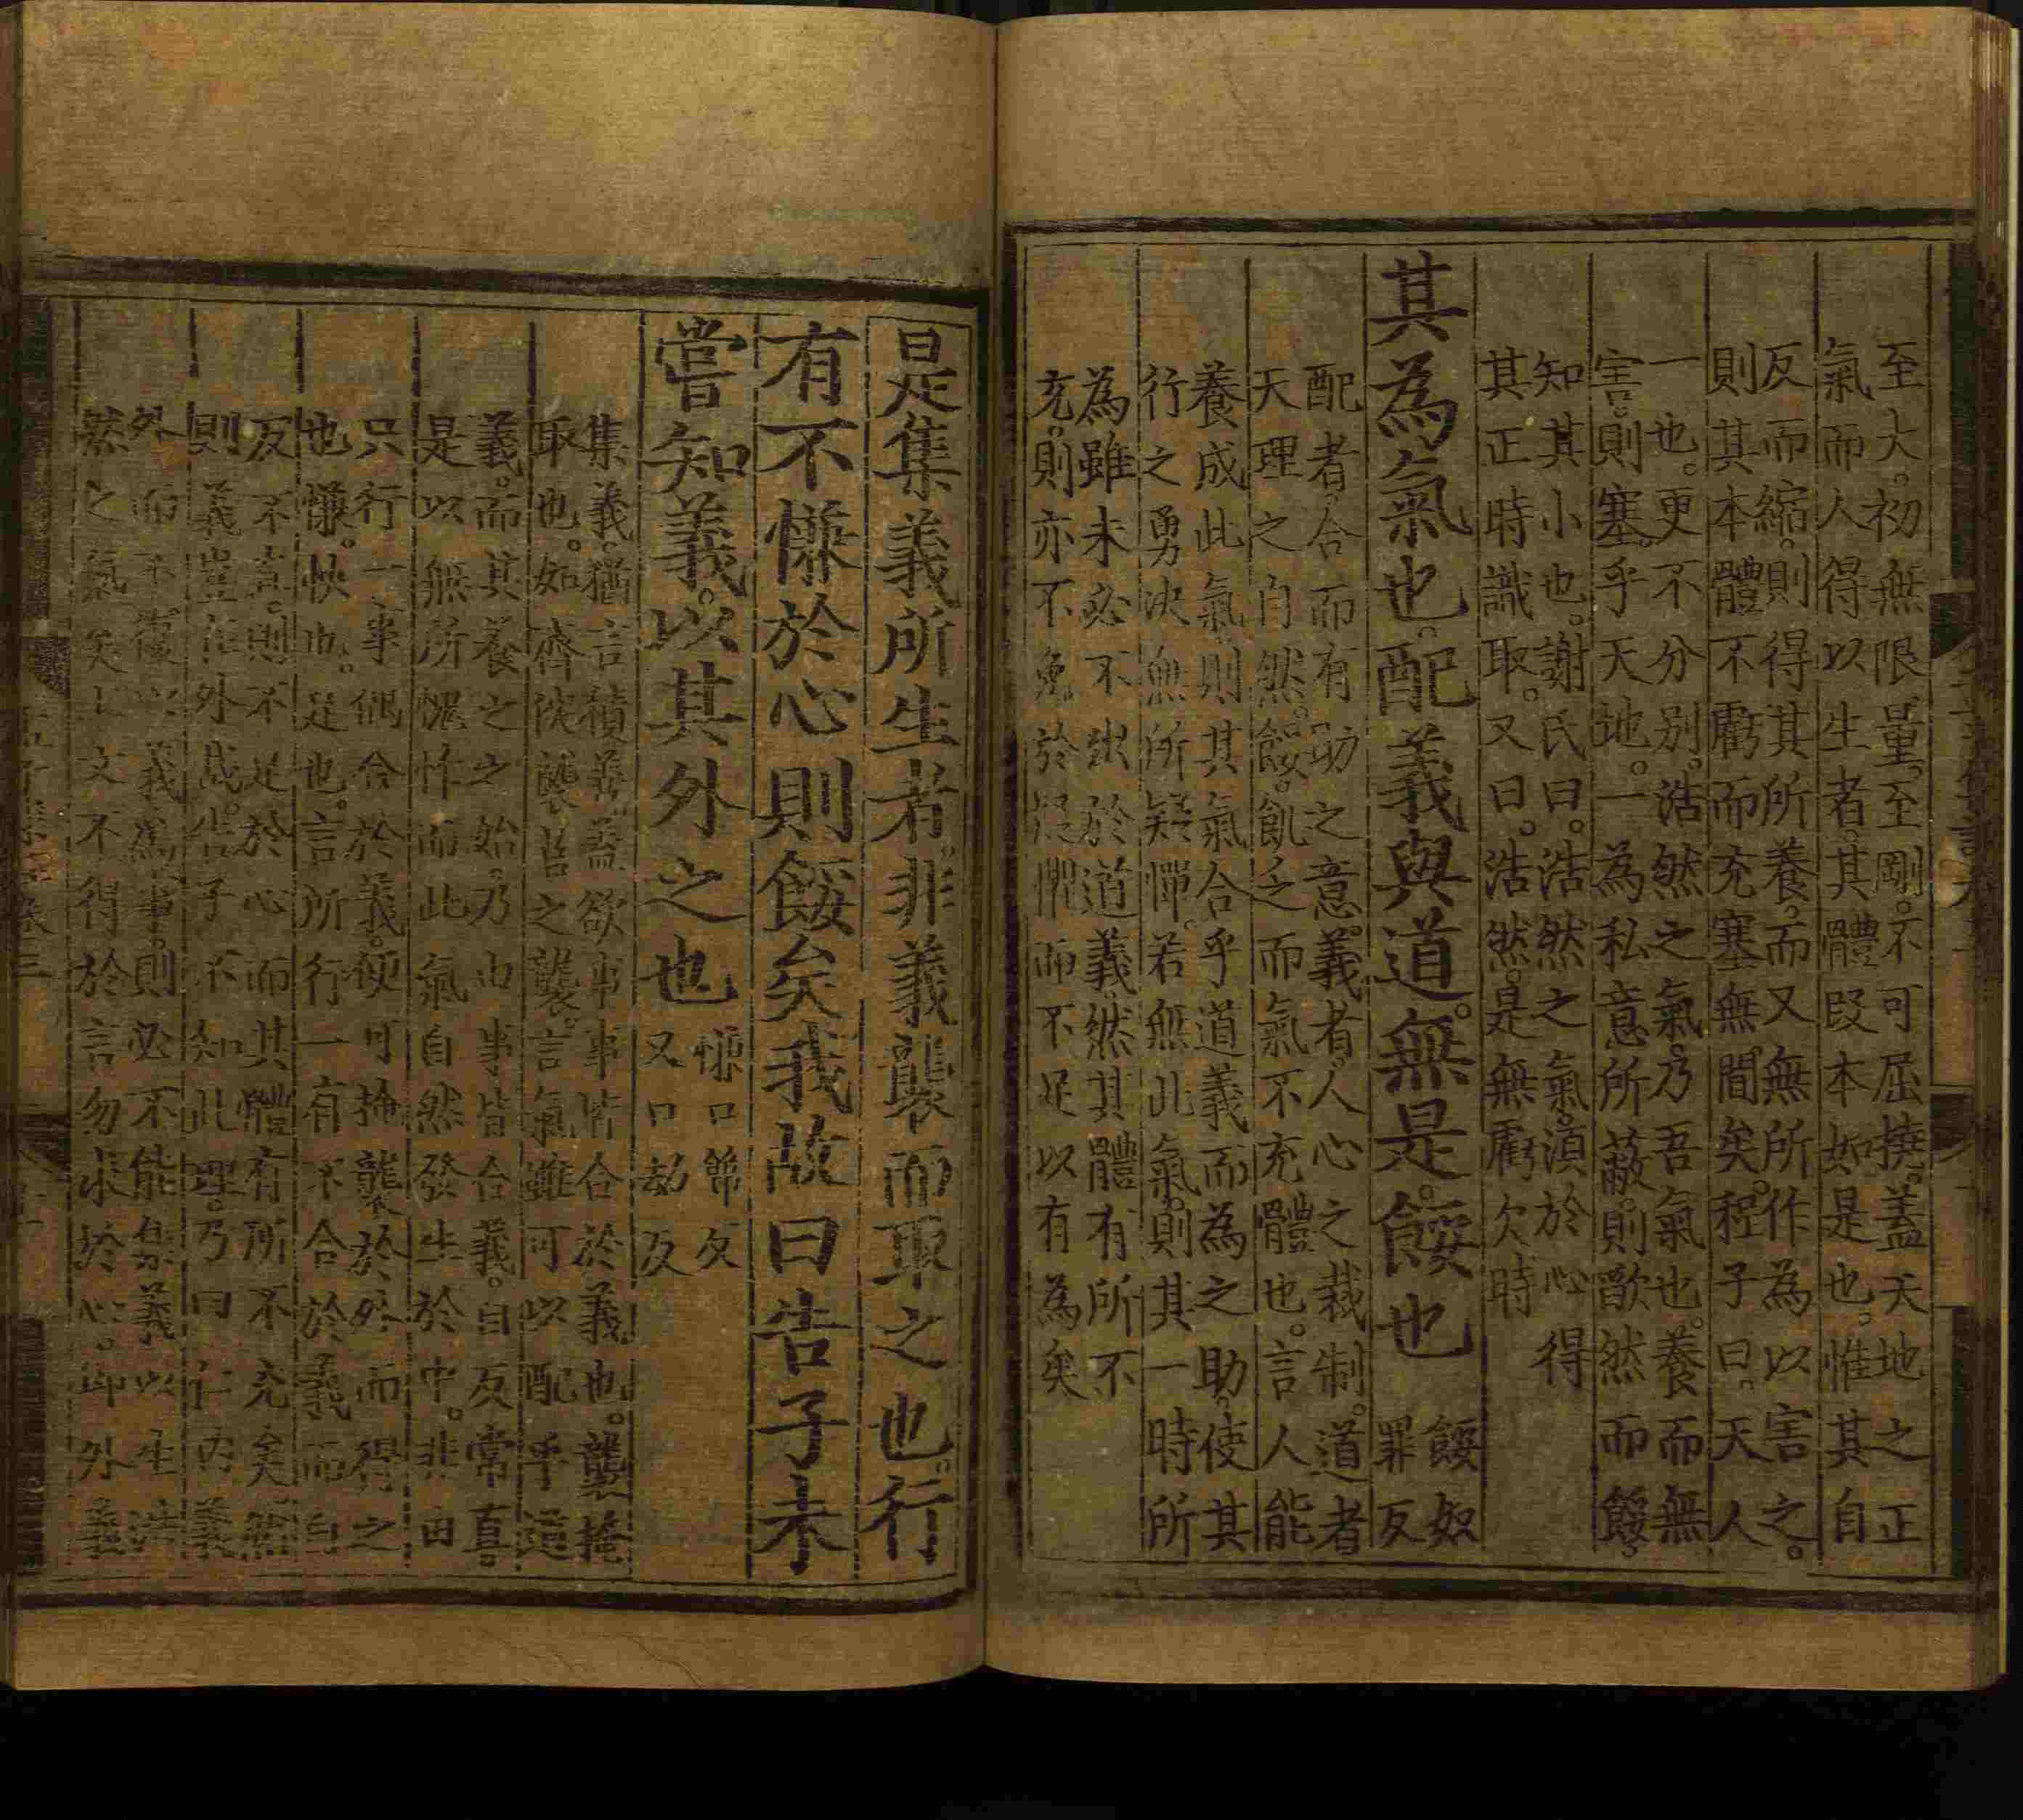 至大。初無限量。至剛。不可屈撓。蓋天地之正
氣而人得以生者。其體段本如是也。惟其自
反而縮。則得其所養。而又無所作為以害之。
則其本體不虧而充塞無間矣。程子曰。天人
一也。更不分別。浩然之氣。乃吾氣也。養而無
害。則塞乎天地。一為私意所蔽。則歉然而餒。
知其小也。謝氏曰。浩然之氣。須於心得
其正時識取。又曰。浩然。是無虧欠時
其為氣也。配義與道。無是。餒也
餒奴
罪反
配者。合而有助之意。義者。人心之裁制。道者
天理之自然。餒。飢乏而氣不充體也。言人能
養成此氣。則其氣合乎道義而為之助。使其
行之勇決無所疑憚。若無此氣。則其一時所
為雖未必不出於道義。然其體有所不
充。則亦不免於疑懼而不足以有為矣
是集義所生者。非義襲而取之也。行
有不慊於心則餒矣我故曰告子未
嘗知義。以其外之也
慊口簟反
又口劫反
集義。猶言積善。蓋欲事事皆合於義也。襲。掩
取也。如齊侯襲莒之襲。言氣雖可以配乎道
義。而其養之之始。乃由事皆合義。自反常直。
是以無所愧怍而此氣自然發生於中。非由
只行一事偶合於義。便可掩襲於外而得之
也。慊。快也。足也。言所行一有不合於義而自
反不直。則不足於心而其體有所不充矣。然
則義豈在外哉。告子不知此理。乃曰仁內義
外而不復以義為事。則必不能集義以生浩
然之氣矣上文不得於言勿求於心。即外義